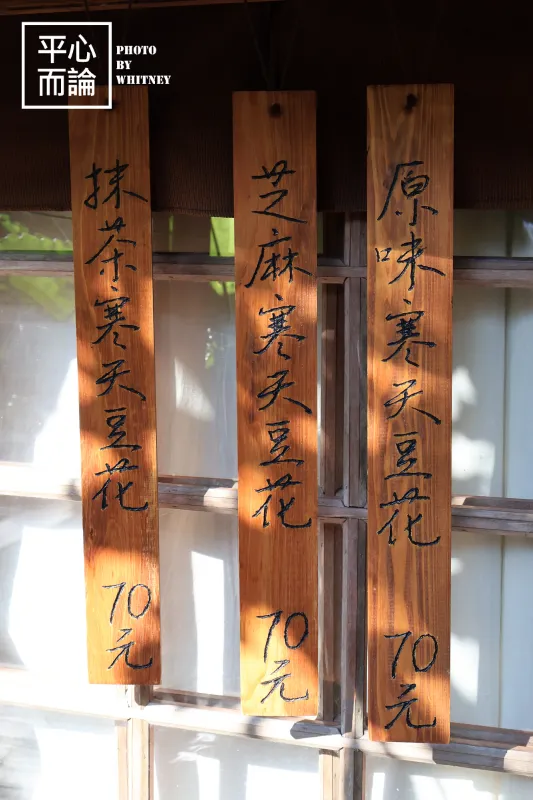 平心
而論
PHOTO
BY
WHITNEY
原味寒天豆花 70元
芝麻寒天豆花 70元
抹茶寒天豆花 70元